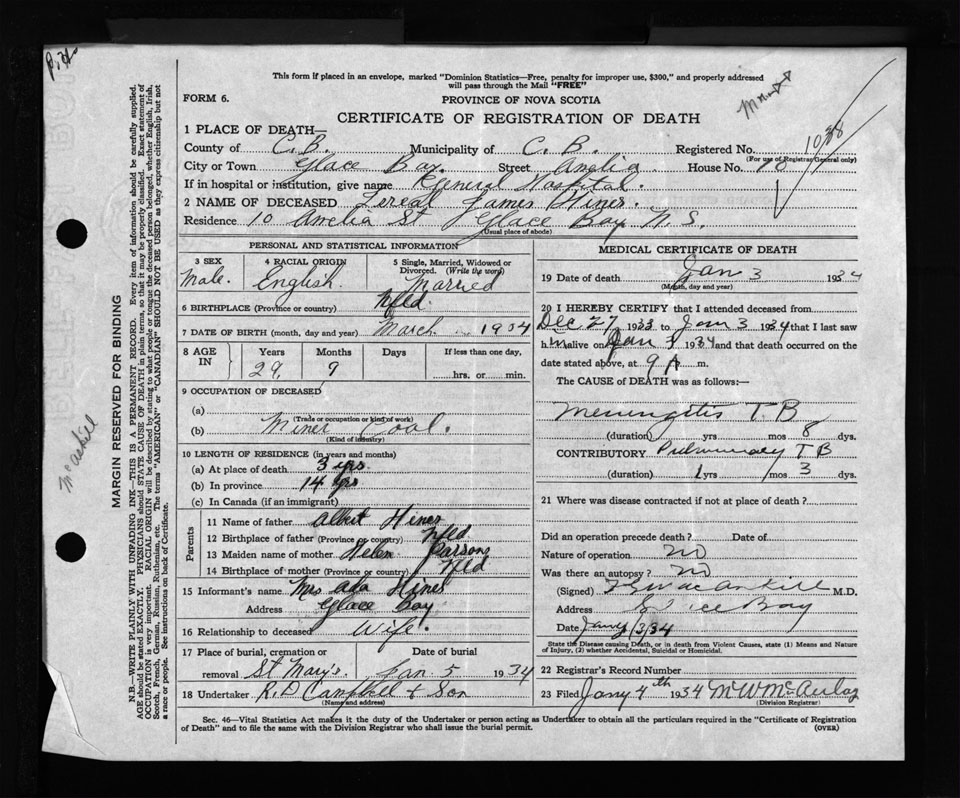 This form if placed in an envelope, marked "Dominion Statistics—Free, penalty for improper use, $300," and properly addressed
will pass through the Mail "FREE"
FORM 6.
PROVINCE OF NOVA SCOTIA
CERTIFICATE OF REGISTRATION OF DEATH
1 PLACE OF DEATH—
County of C. B. Municipality of C. B. Registered No.
(For use of Registrar General only)
City or Town Glace Bay. Street Amelia House No. 10
If in hospital or institution, give name General Hospital.
2 NAME OF DECEASED James Hines.
Residence 10 Amelia St Glace Bay N.S.
(Usual place of abode)
PERSONAL AND STATISTICAL INFORMATION
3 SEX 4 RACIAL ORIGIN 5 Single, Married, Widowed or
Divorced. (Write the word)
Male. English. Married
6 BIRTHPLACE (Province or country) Nfld.
7 DATE OF BIRTH (month, day and year) March 1904
8 AGE IN Years Months Days If less than one day,
29 9 hrs. or min.
9 OCCUPATION OF DECEASED
(a)
(Trade or occupation or kind of work)
(b) Miner Coal.
(Kind of industry)
10 LENGTH OF RESIDENCE (in years and months)
(a) At place of death 3 yrs.
(b) In province 14 yrs
(c) In Canada (if an immigrant)
Parents
11 Name of father Albert Hines
12 Birthplace of father (Province or country) Nfld
13 Maiden name of mother Helen Parsons
14 Birthplace of mother (Province or country) Nfld
15 Informant's name Mrs Ada Hines
Address Glace Bay
16 Relationship to deceased Wife.
17 Place of burial, cremation or
removal St Mary's. Jan 5 1934
18 Undertaker R. D Campbell & Son
(Name and address)
MEDICAL CERTIFICATE OF DEATH
19 Date of death Jan 3 1934
(Month, day and year)
20 I HEREBY CERTIFY that I attended deceased from
Dec 27 1933 to Jan 3 1934 that I last saw
him alive on Jan 3 1934 and that death occurred on the
date stated above, at 9 A m.
The CAUSE OF DEATH was as follows:—
Meningitis T. B
(duration) yrs mos 8 dys.
CONTRIBUTORY Pulmonary T B
(duration) 1 yrs mos 3 dys.
21 Where was disease contracted if not at place of death?
Did an operation precede death? Date of
Nature of operation no
Was there an autopsy? no
(Signed) M.D.
Address Glace Bay
Date Jany/3/34
State the Disease causing Death, or in death from Violent Causes, state (1) Means and Nature
of Injury, (2) whether Accidental, Suicidal or Homicidal.
22 Registrar's Record Number
23 Filed Jany 4th 1934 M W McAulay
(Division Registrar)
Sec. 46—Vital Statistics Act makes it the duty of the Undertaker or person acting as Undertaker to obtain all the particulars required in the "Certificate of Registration
of Death" and to file the same with the Division Registrar who shall issue the burial permit. (OVER)
MARGIN RESERVED FOR BINDING
McAskill
N.B.—WRITE PLAINLY WITH UNFADING INK—THIS IS A PERMANENT RECORD. Every item of information should be carefully supplied.
AGE should be stated EXACTLY. PHYSICIANS should STATE CAUSE OF DEATH in plain terms, so that it may be properly classified. Exact statement of
OCCUPATION is very important. RACIAL ORIGIN will be described by stating to what people or tongue the deceased person belonged, whether English, Irish,
Scotch, French, German, Russian, Ruthenian, etc. The terms "AMERICAN" or "CANADIAN" SHOULD NOT BE USED as they express citizenship but not
a race or people. See instructions on back of Certificate.